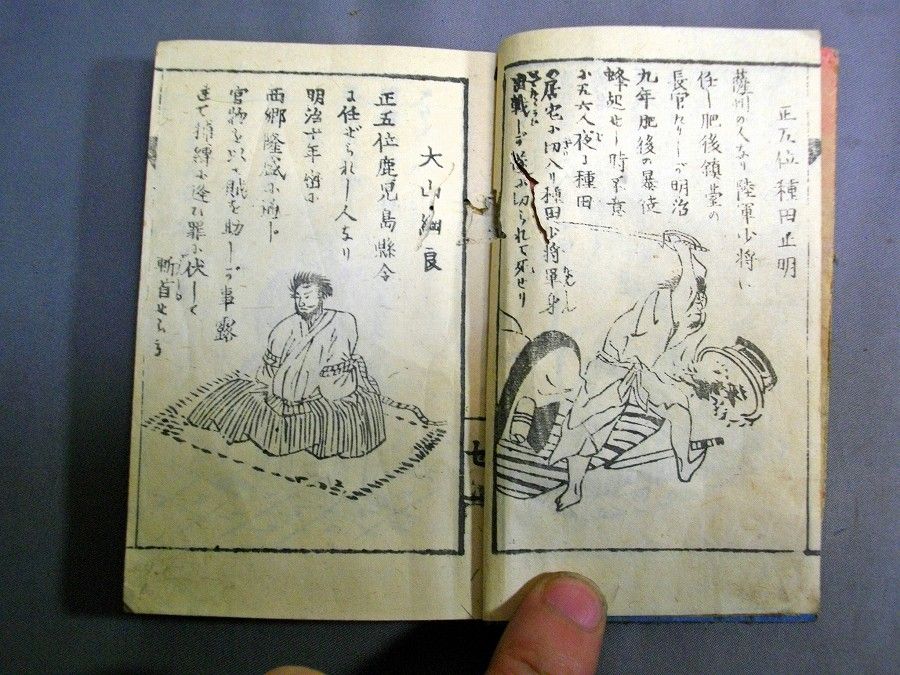 正五位 種田正明
薩州の人なり 陸軍少将に
任し肥後鎮臺の
長官たりしが明治
九年肥後の暴徒
蜂起せし時不意
に五六人夜に種田
の居宅に切入り種田少将單身
奮戦して遂に切られて死せり
大山綱良
正五位鹿児島縣令
に任ぜられし人なり
明治十年密に
西郷隆盛に通じ
官物を以て賊を助しが事露
まで捕縛に逢ひ罪に伏して
斬首せらる